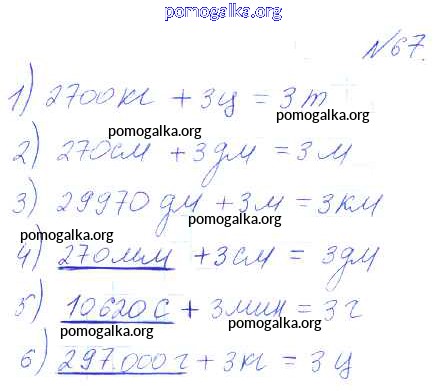 pomogalka.org
№67.
1) 2700кг + 3ц = 3т
pomogalka.org
pomogalka.org
2) 270см + 3дм = 3м
3) 29970 дм + 3м = 3км
pomogalka.org
pomogalka.org
4) 270мм + 3см = 3дм
pomogalka.org
5) 10620с + 3мин = 3г
pomogalka.org
pomogalka.org
6) 297.000г + 3кг = 3ц
pomogalka.org